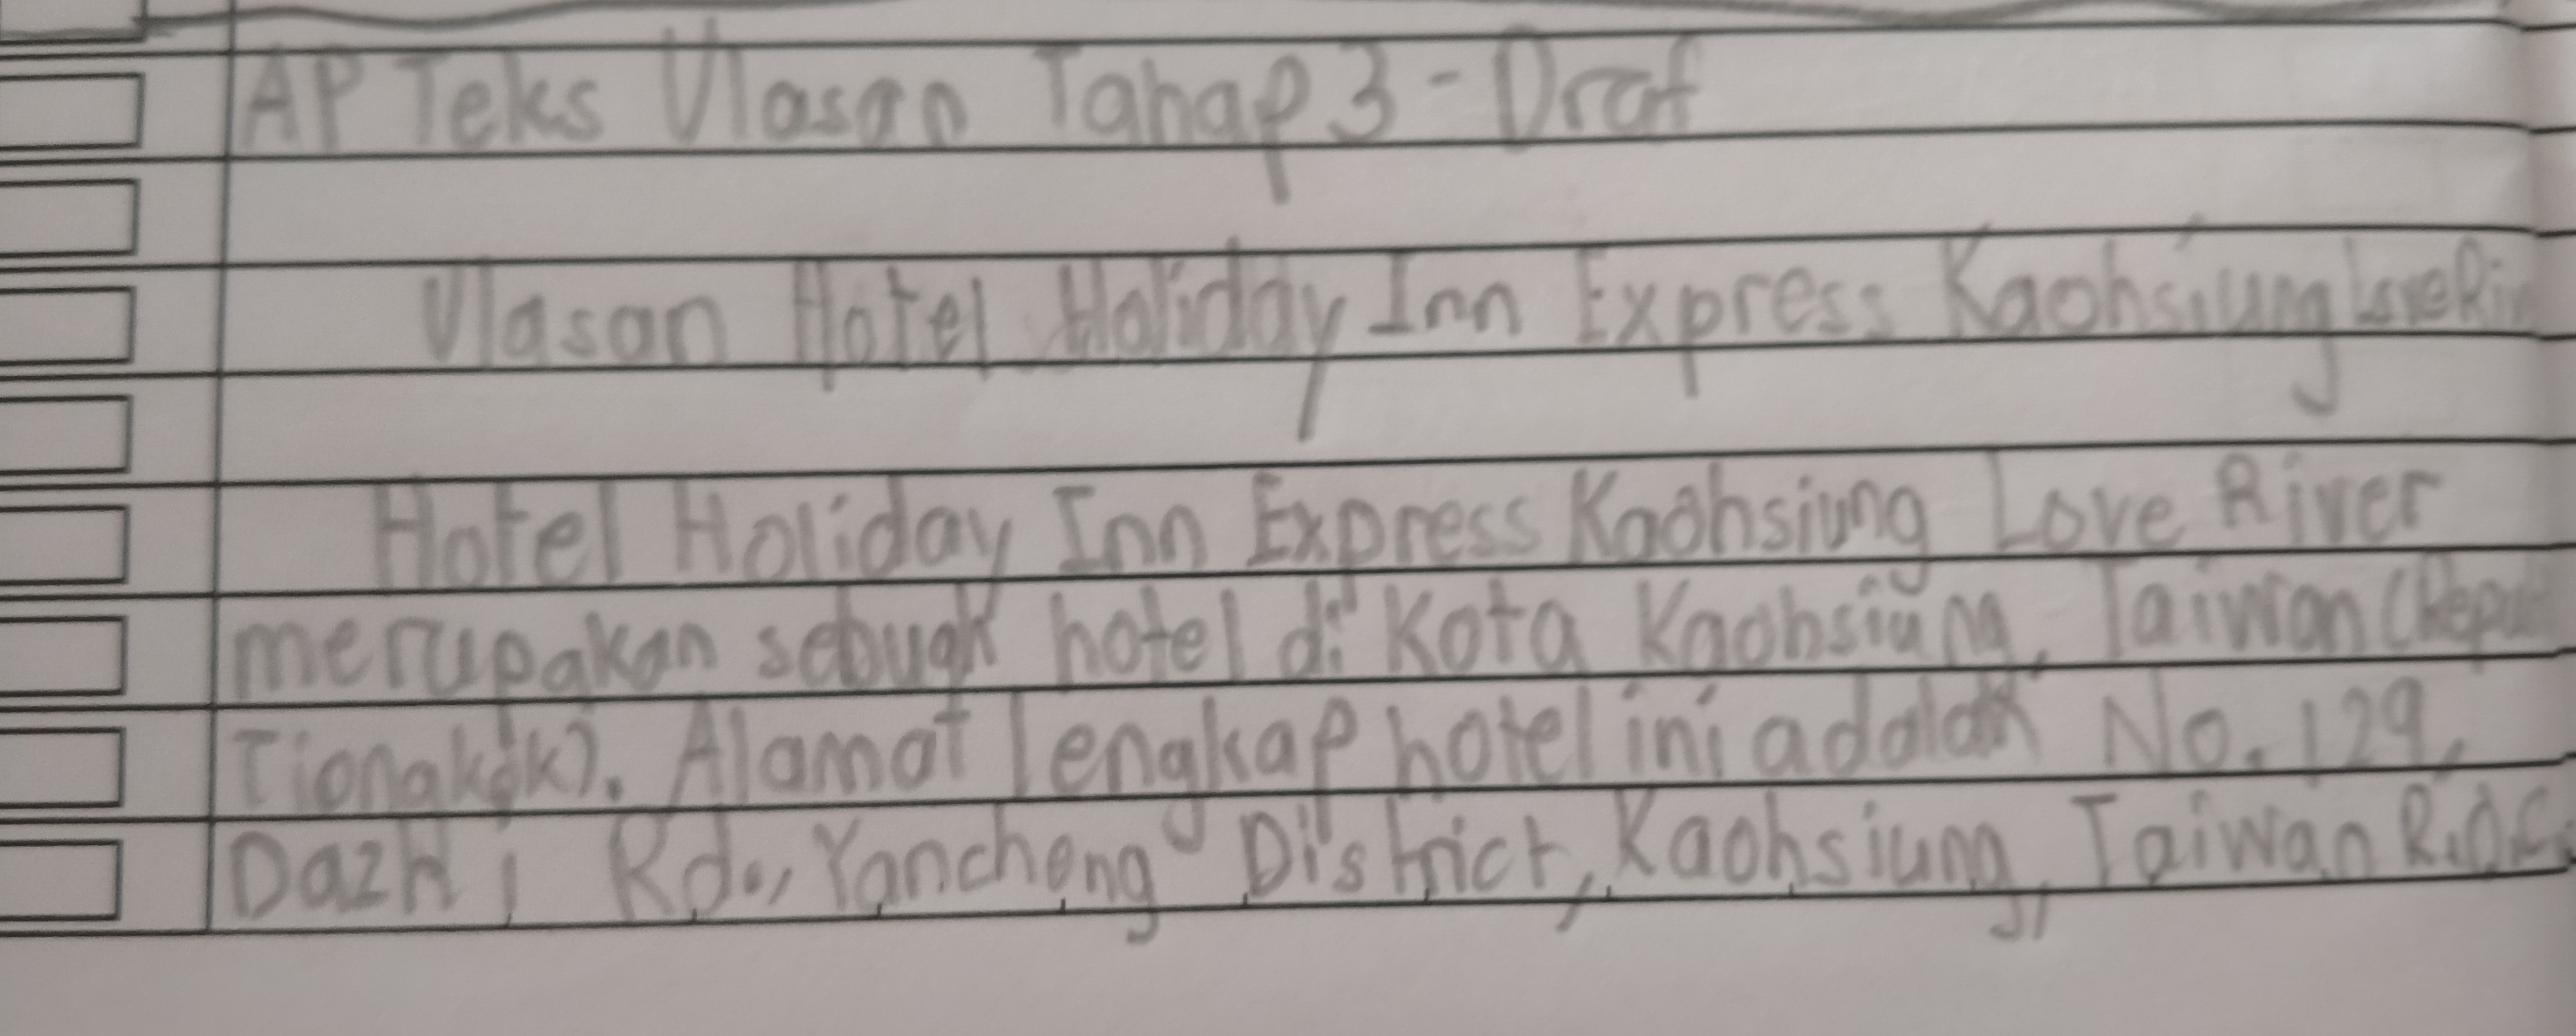 AP Teks Ulasan Tahap 3 - Draf
Ulasan Hotel Holiday Inn Express Kaohsiung Love
Hotel Holiday Inn Express Kaohsiung Love River
merupakan sebuah hotel di Kota Kaohsiung, Taiwan (Repu
Tiongkok). Alamat lengkap hotel ini adalah No. 129,
Dazhi Rd., Yancheng District, Kaohsiung, Taiwan R.O.C.